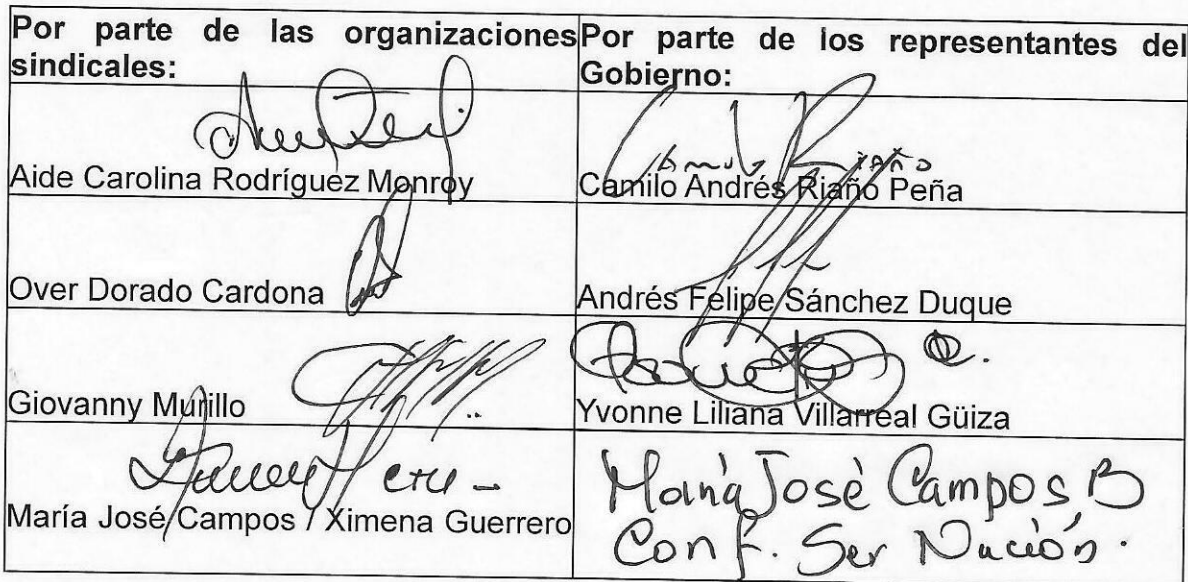 Por parte de las organizaciones sindicales:
Por parte de los representantes del Gobierno:
Aide Carolina Rodríguez Monroy
Camilo Riaño
Camilo Andrés Riaño Peña
Over Dorado Cardona
Andrés Felipe Sánchez Duque
Giovanny Murillo
Yvonne Liliana Villarreal Güiza
María José Campos / Ximena Guerrero
María José Campos B
Conf. Ser Nación.